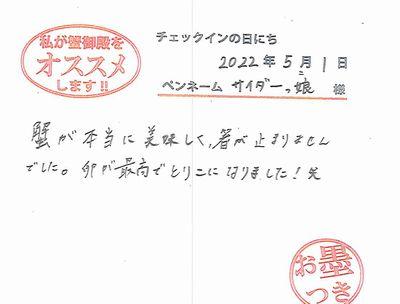 私が蟹御殿を
オススメ
します!!
チェックインの日にち
2022年5月1日
ペンネーム サイダーっ娘 様
蟹が本当に美味しく、箸が止まりません
でした。卵が最高でとりこになりました!笑
お墨
つき